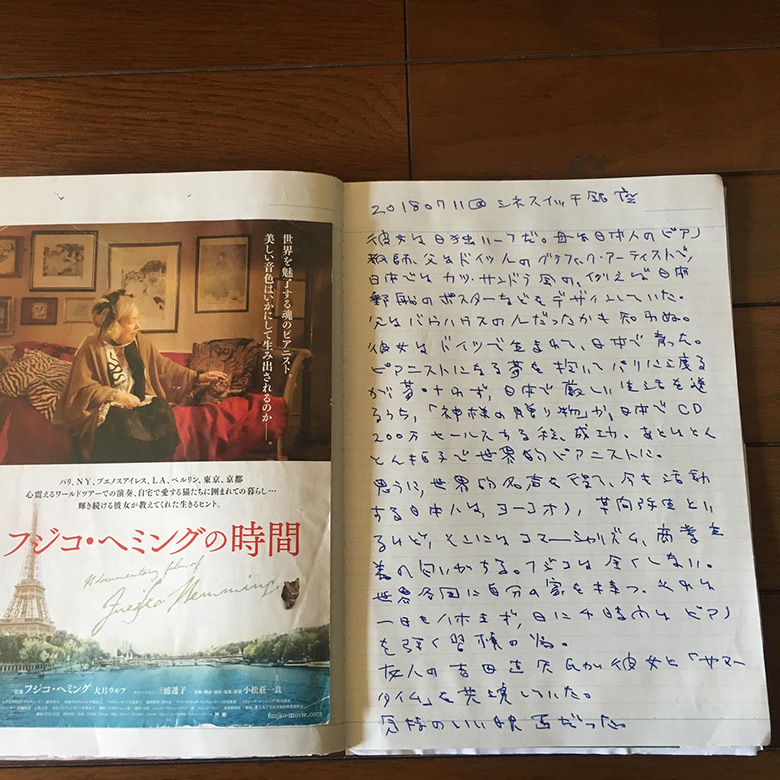 世界を魅了する魂のピアニスト、
美しい音色はいかにして生み出されるのか――。
パリ、NY、ブエノスアイレス、LA、ベルリン、東京、京都
心震えるワールドツアーでの演奏、自宅で愛する猫たちに囲まれての暮らし…
輝き続ける彼女が教えてくれた生きるヒント。
フジコ・ヘミングの時間
A documentary film of
Fuzjko Hemming
フジコ・ヘミング 大月ウルフ 三浦透子 小松莊一良
fuzjko-movie.com
20180711 シネスイッチ銀座
彼女は日独ハーフだ。母は日本人のピアノ
教師、父はドイツ人のグラフィック・アーティストで、
日本ではカッサンドラ風の、例えば日本
郵船のポスターなどをデザインしていた。
父はバウハウスの人だったかも知れぬ。
彼女はドイツで生まれて、日本で育った。
ピアニストになる夢を抱いてパリに渡る
が夢叶わず、日本で厳しい生活を送
るうち、「神様の贈り物」か、日本でCD
200万セールスする程、成功、あとはとん
とん拍子で世界的ピアニストに。
思うに、世界的名声を得て、今も活動
する日本人は、ヨーコオノ、草間弥生とい
るけど、そこにはコマーシャリズム、商業主
義の匂いがする。フジコは全くしない。
世界各国に自分の家を持つ、それは
一日も休まず、日に4時間は ピアノ
を弾く習慣の為。
友人の吉田 氏が彼女と「サマー
タイム」を共演していた。
気持のいい映画だった。